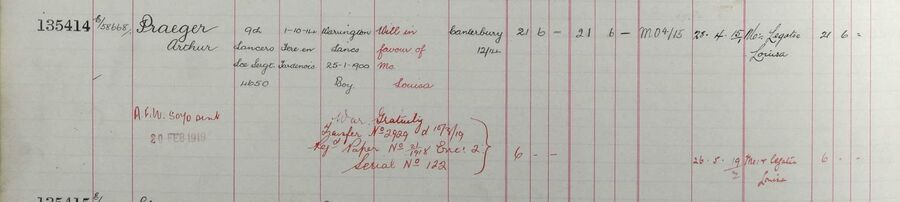 135414 E/58668/1 Praeger 9th 1-10-14 Warrington Will in Canterbury 21 6 - 21 6 - M.O4/15 28 4 15 Mo: Legatee 21 6 -
Arthur Lancers Fere en Lancs favour of 12/14 Louisa
Lce Sergt. Tardenois. 25-1-1900 Mo:
4650 Boy. Louisa
A.F.W. 5070 sent
20 FEB 1919
War Gratuity
Transfer No 2929 d 15/8/19
Regd Paper No 21/1918 Enc: 2
Serial No 122
6 - -
26 8 19 Mo: & Legatee 6 - -
Louisa
135415 E/